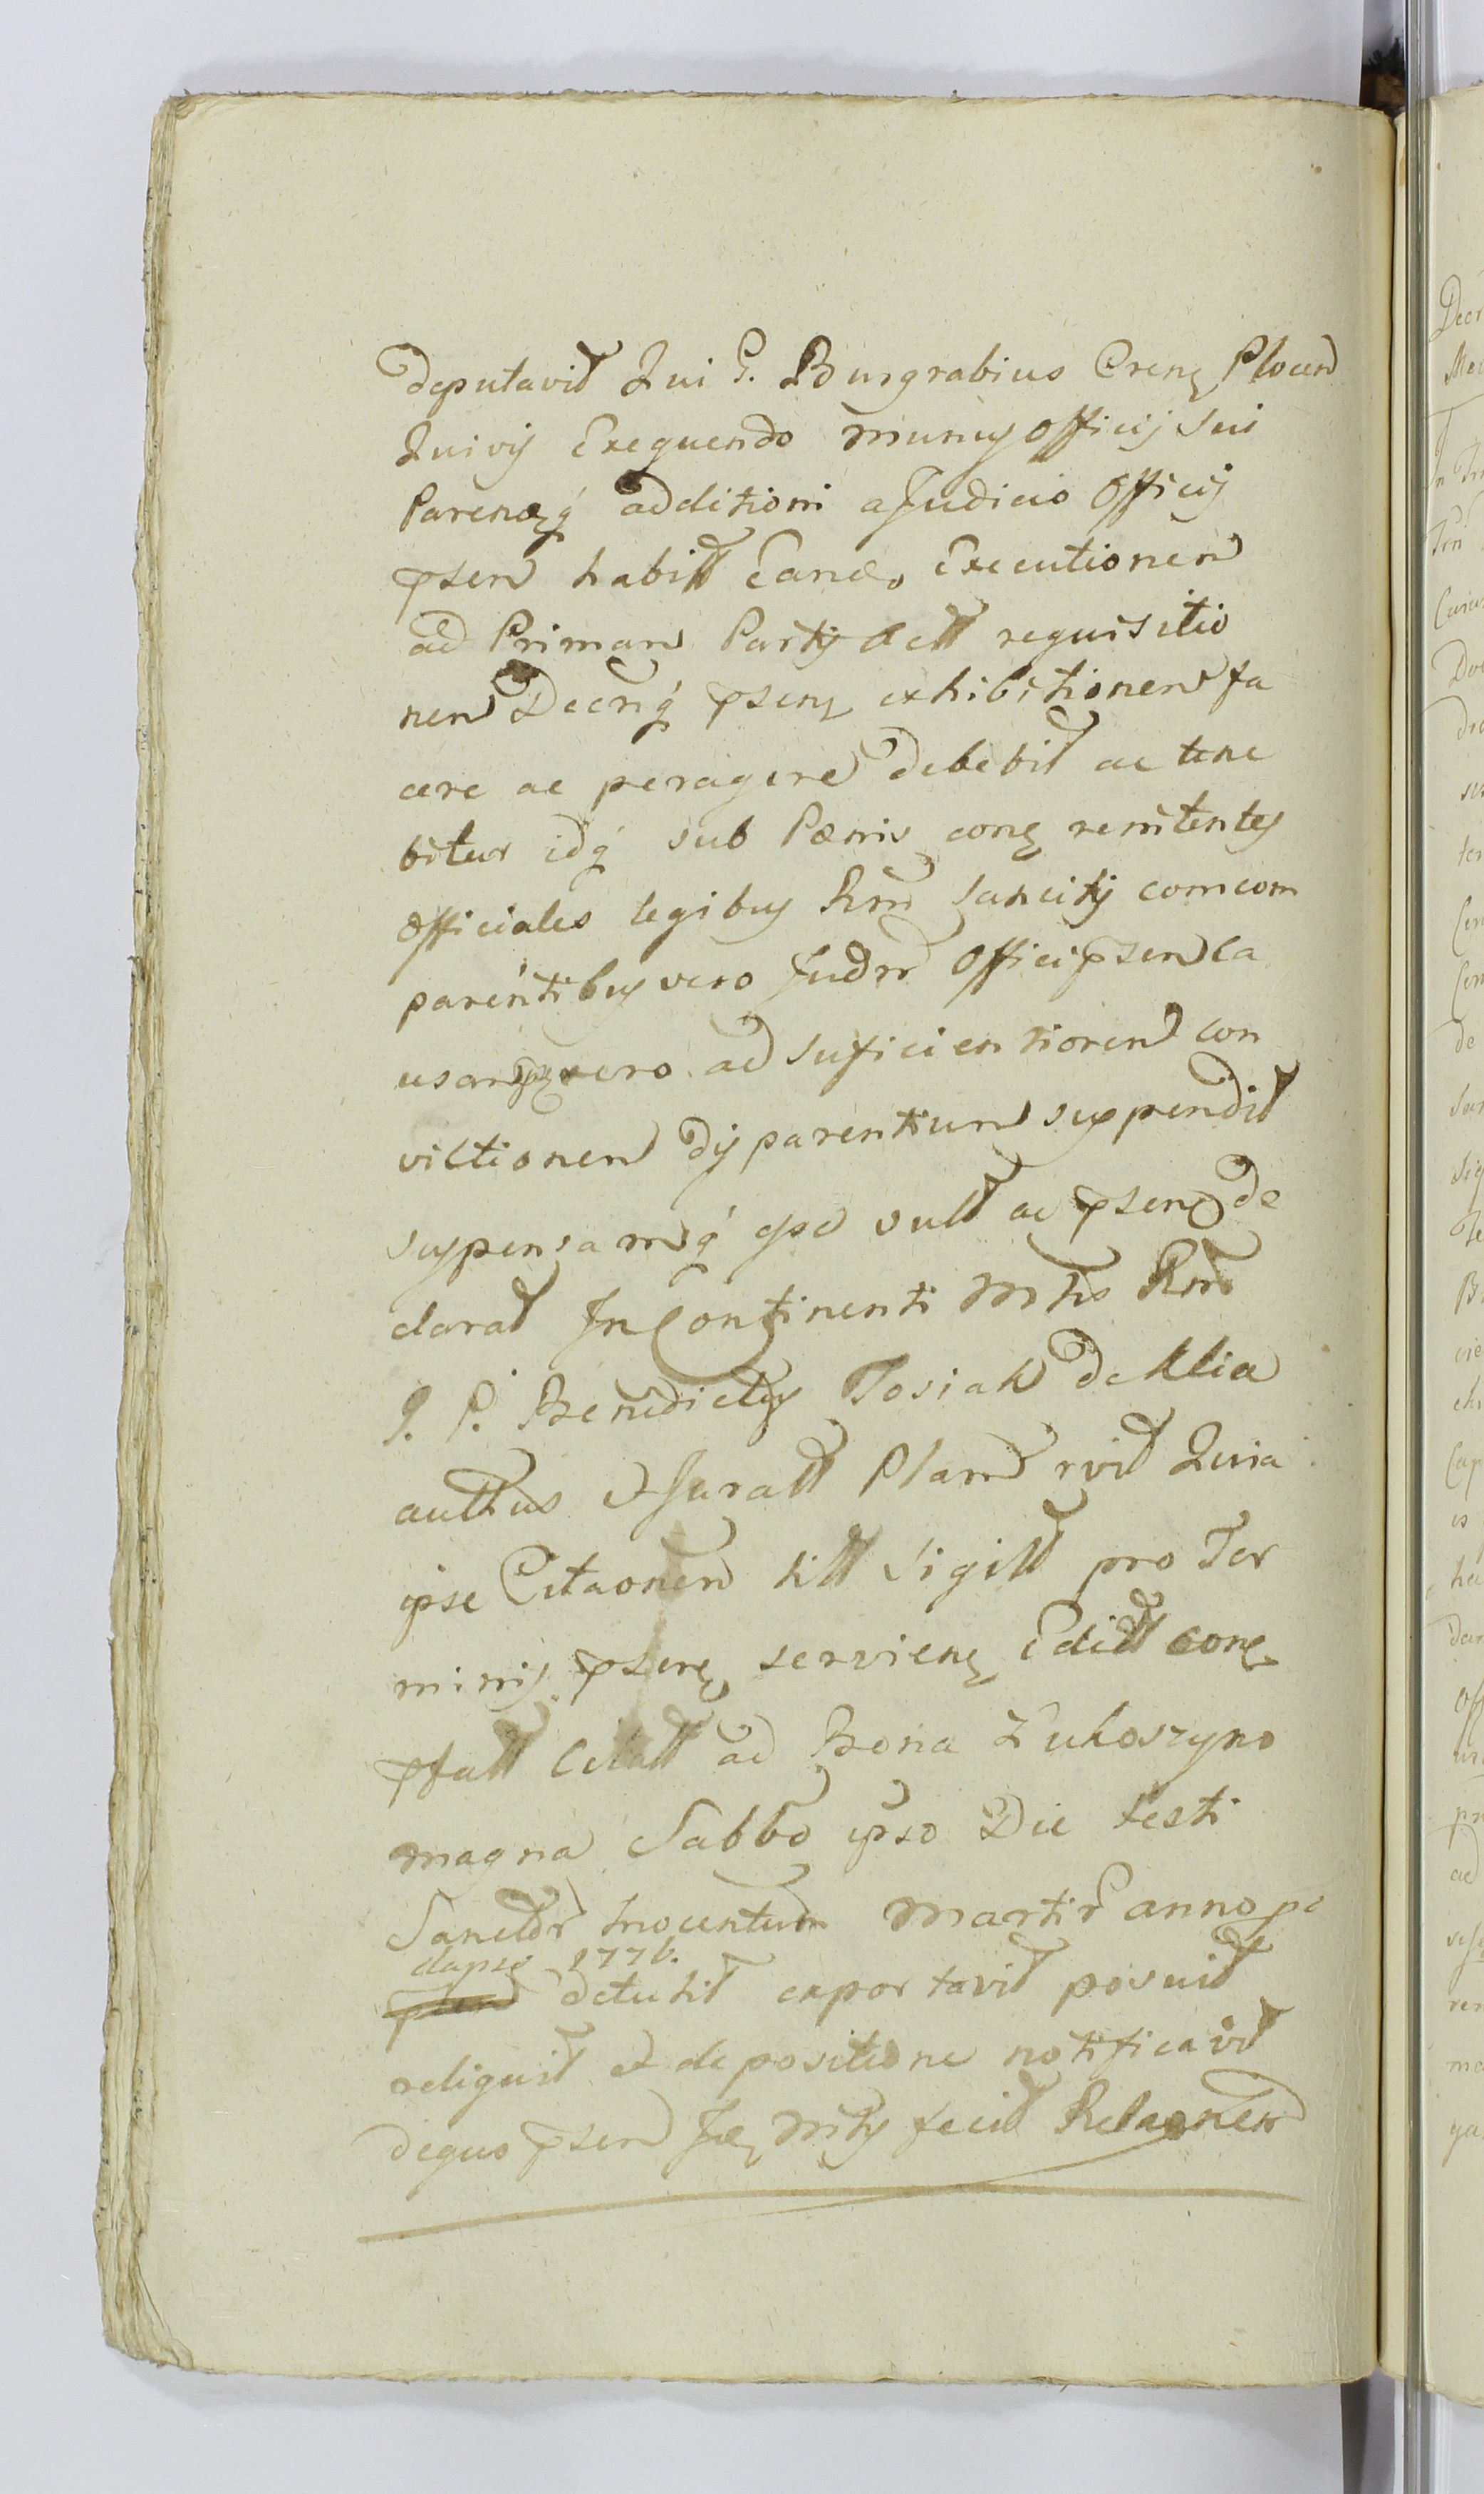 deputavit Qui G. Burgrabius Cren Plocen
Qui vij Exequendo munus officij sui
Parenq additioni a Judicio Officij
psen habitt Eand Executionem
ad Primam Partis actt requisitio
nem Decriq psen exhibitionem fa
cere ac peragere debebit ac tene
bitur idq sub Pænis con renitentes
officiales legibus Rni sancitis comcom
parentibus vero Judrr Offici psen ca
usam vero ad suficientiorem con
victionem disparentium suspendit
suspensamq esse vult ac psen de
clarat In Continenti Mtrs Rni
G. P. Benedictus Tosiak de Klia
autthus et Juratt Plam rvit Quia
ipse Citaonem litt sigill pro Ter
minis psen servien Editt con
pfatt Citatt ad Bona Łukoszyno
magna Sabbo ipso Die festi
Sanctor Inocentum Martir anno pe
dapse 1776.
detulit exportavit posuit
reliquit et depositione notificavit
dequo psen Jud Mtrs fecit Relaonem